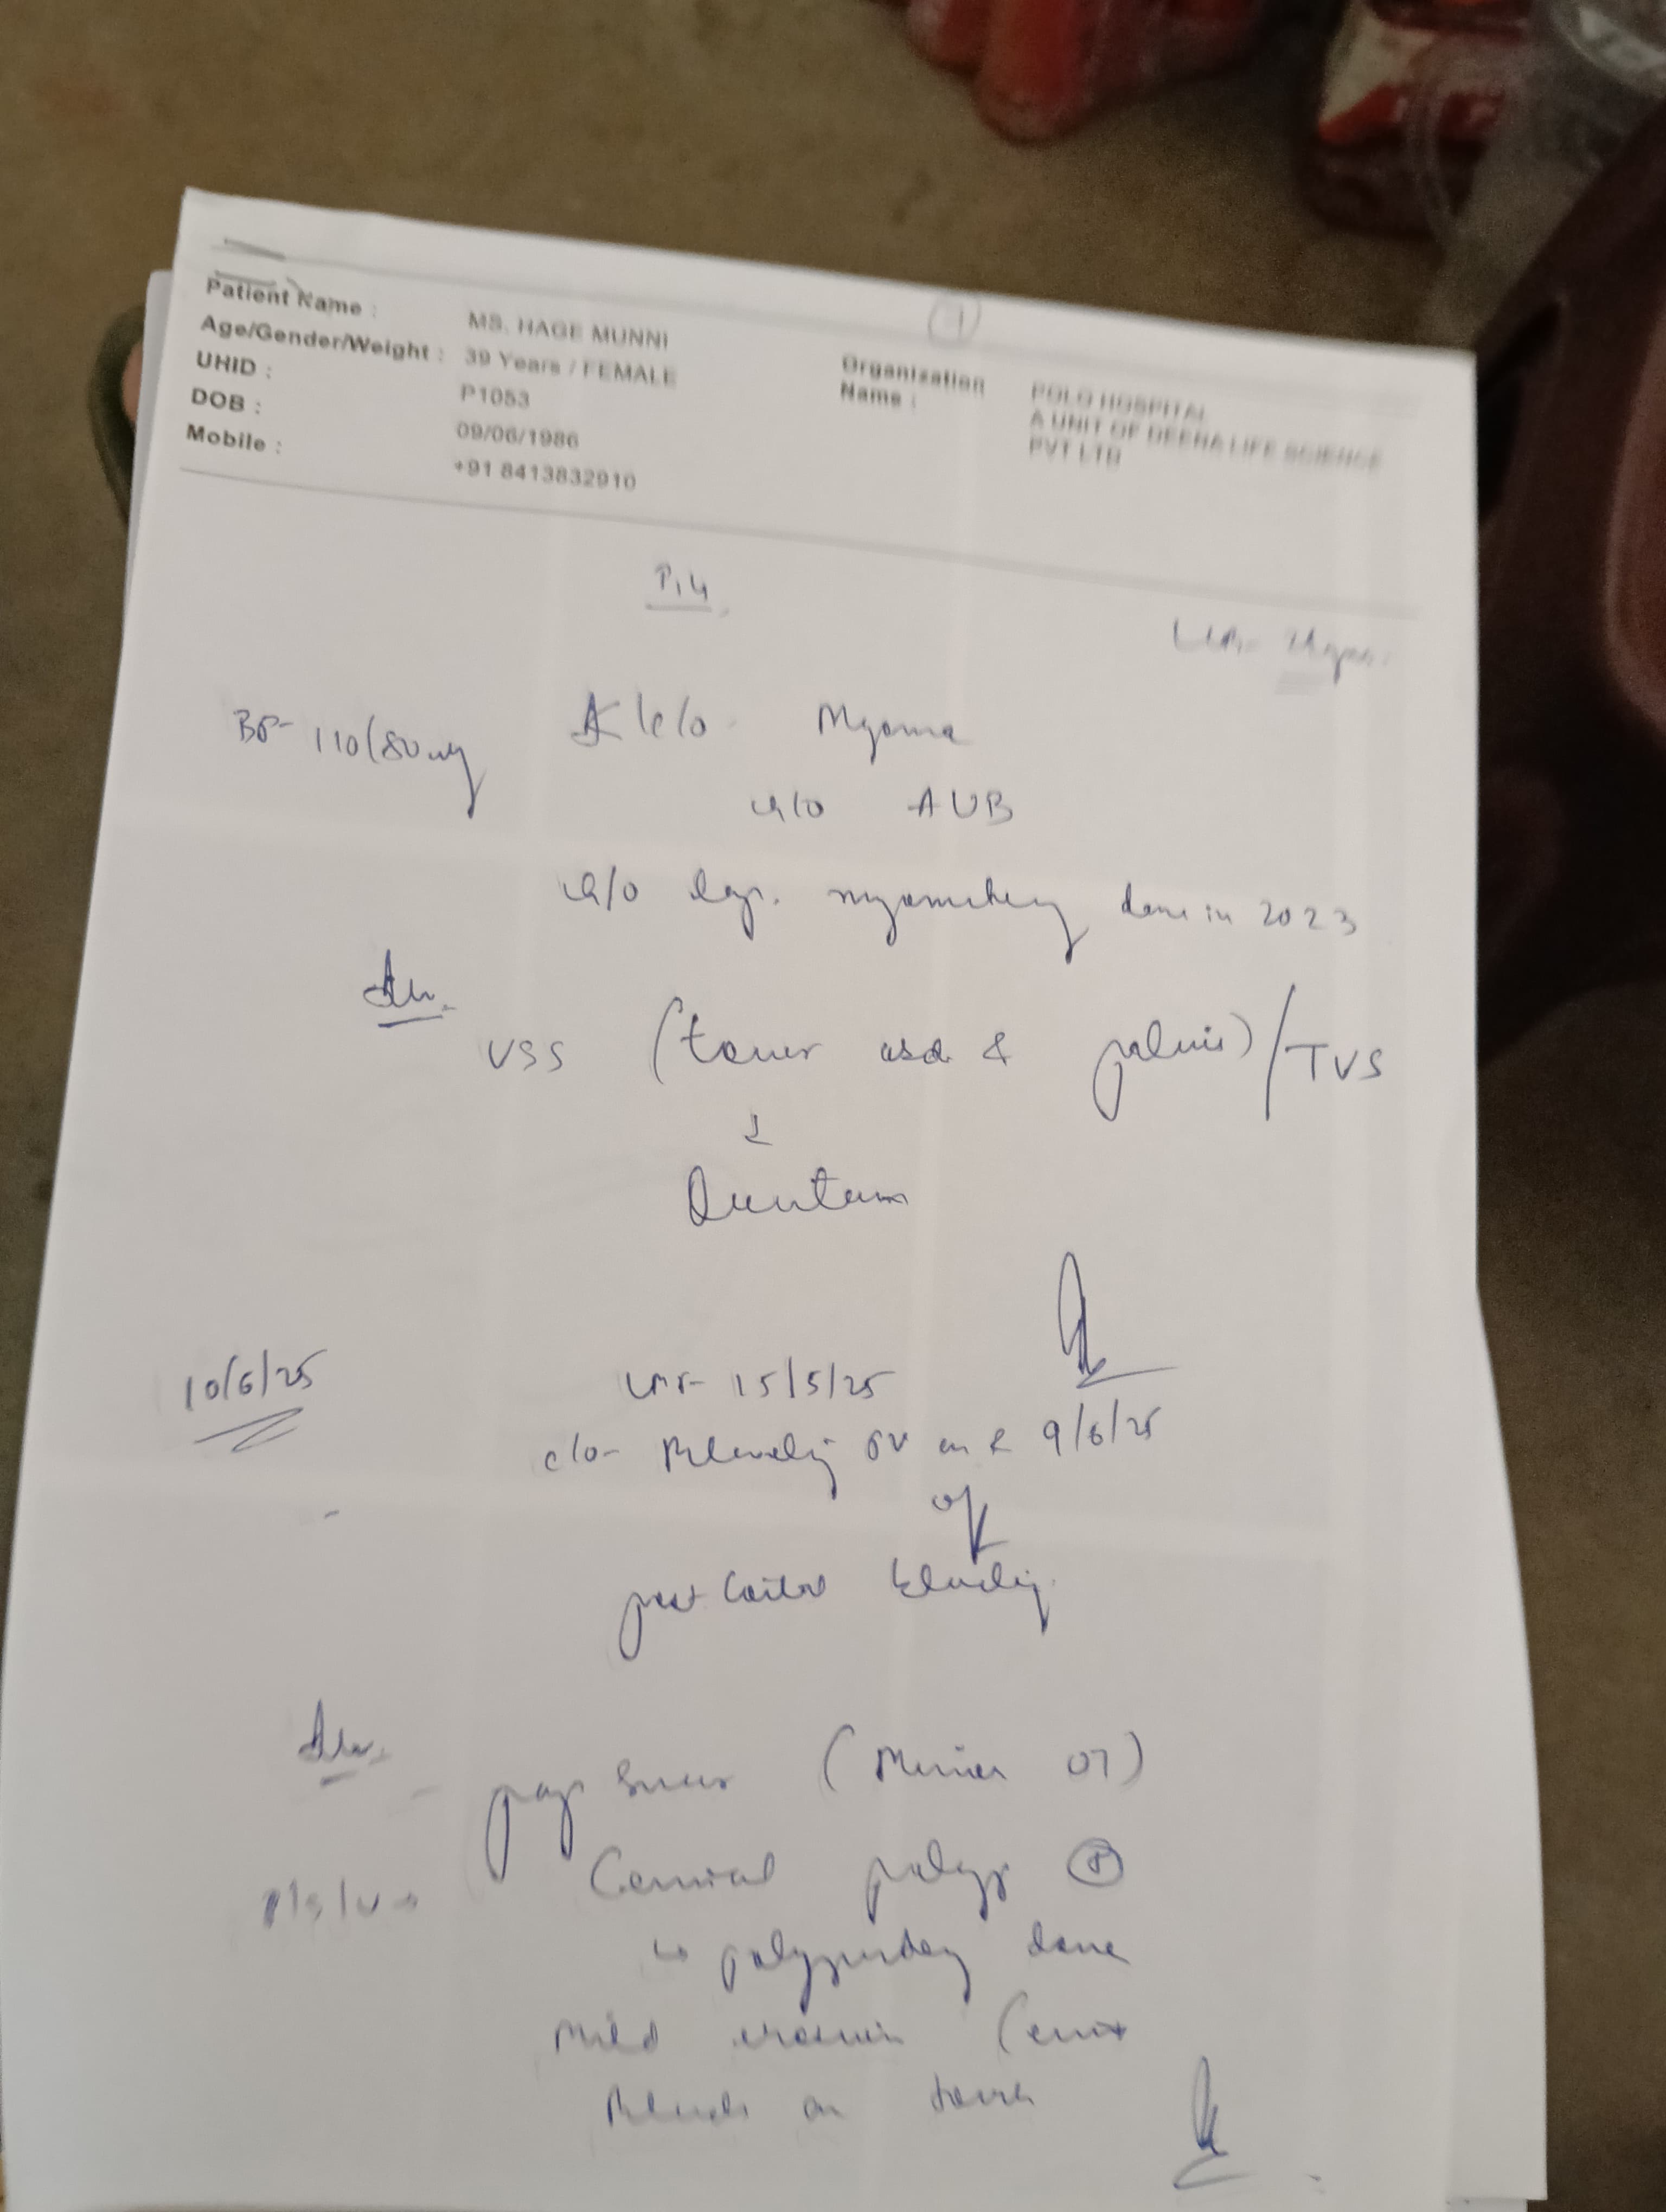 Patient Name : MS. HAGE MUNNI
Age/Gender/Weight : 39 Years / FEMALE
UHID : P1053
DOB : 09/06/1986
Mobile : +91 8413832910
1
Organisation Name : POLO HOSPITAL
A UNIT OF DEENA LIFE SCIENCE
PVT LTD
BP- 110/80
k/c/o Myoma
h/o AUB
h/o lap. myomectomy done in 2023
Adv.
USS (lower abd & pelvis) / TVS
↓
10/6/25
LMP- 15/5/25
c/o- Bleeding PV on & 9/6/25
post coital bleeding
Adv.
pap smear
Cervical polyp
↳ polypectomy done
Mild erosion
Bleeds on touch